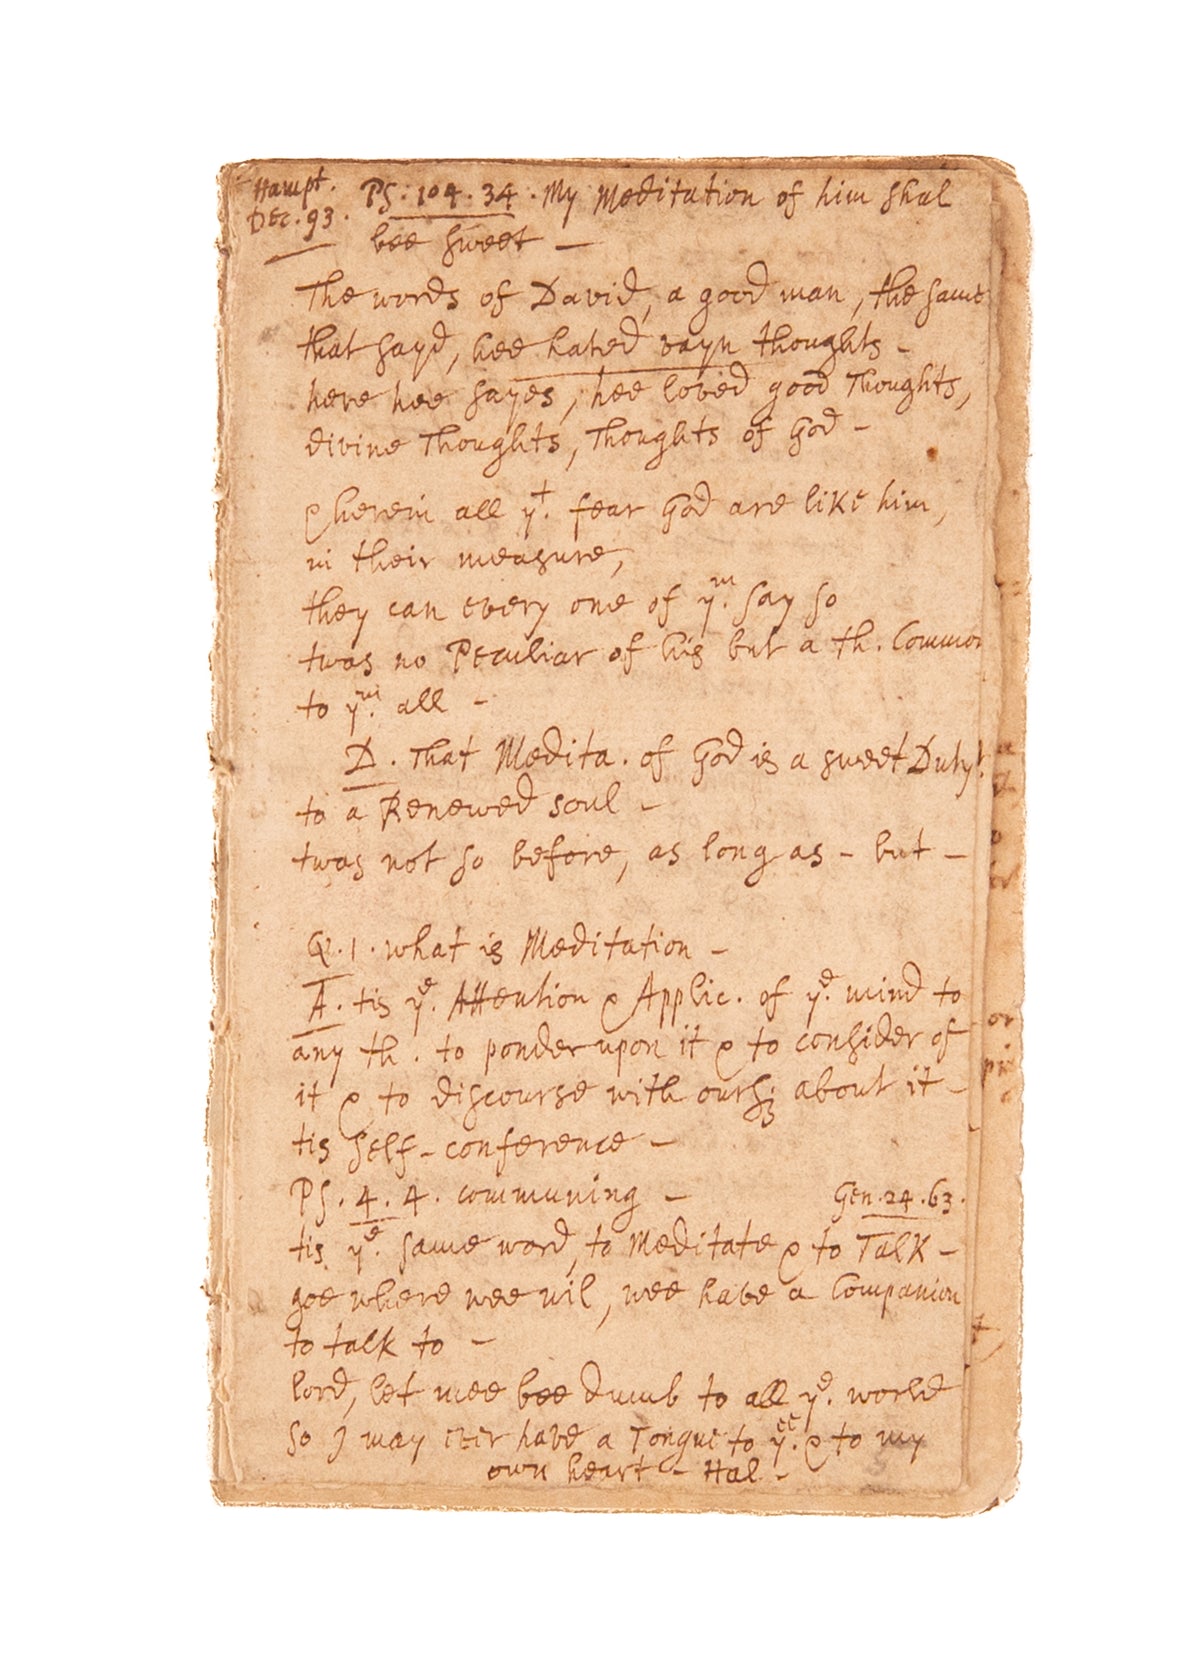 Hampt.
Dec. 93.
Ps. 104. 34. My Meditation of him shal
bee sweet —
The words of David, a good man, the same
that sayd, hee hated vayn thoughts -
here hee sayes, hee loved good Thoughts,
divine Thoughts, Thoughts of God -
wherein all yt. fear God are like him,
in their measure,
they can every one of ym. say so
twas no Peculiar of his but a th. Common
to ym. all -
D. That Medita. of God is a sweet Duty
to a Renewed soul -
twas not so before, as long as - but -
Q. 1. what is Meditation -
A. tis ye. Attention & Applic. of ye. mind to
any th. to ponder upon it & to consider of
it & to discourse with ours; about it -
tis self-conference -
Ps. 4. 4. communing - Gen. 24. 63.
tis ye. same word, to Meditate & to Talk -
goe where wee wil, wee have a Companion
to talk to -
lord, let mee bee dumb to all ye. world
so I may ever have a Tongue to yee. & to my
own heart - Hal -
or